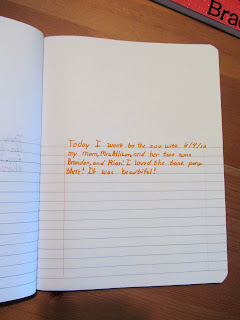 Brad
Today I went to the zoo with 6/9/10
my mom, Mrs. Allison, and her two sons
Brandon, and Alan! I loved the tree pony
there! It was beautiful!